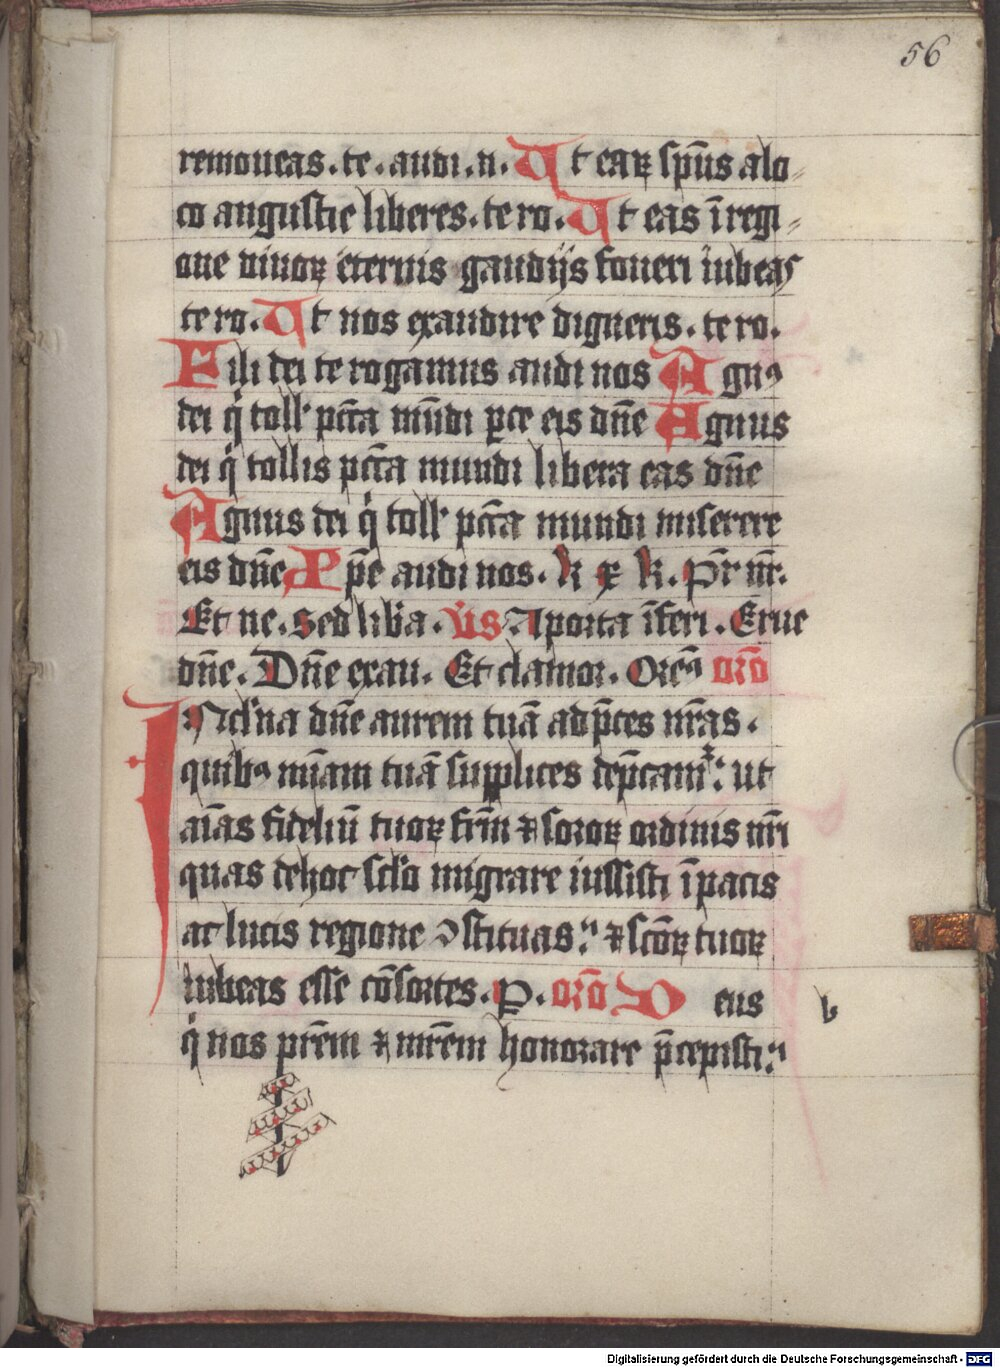 56
remoueas. te. audi. n. Ut eaꝝ sp̄us a lo-
co angustie liberes. te ro. Ut eas ī regi-
one viuoꝝ eternis gaudijs foueri iubeas
te ro. Ut nos exaudire digneris. te ro.
Fili dei te rogamus audi nos Agnꝰ
dei q̇ toll' pctā mūdi ꝑce eis dn̄e Agnus
dei q̇ tollis pctā mundi libera eas dn̄e
Agnus dei q̇ toll' pctā mundi miserere
eis dn̄e Xp̄e audi nos. k x̄ k. Pr̄ nr̄.
Et ne. Sed lib̄a. v̇s A porta īferi. Erue
dn̄e. Dn̄e exau. Et clamor. Oremꝰ or̄o
Inclīna dn̄e aurem tuā ad p̄ces nr̄as.
quibꝰ mīam tuā supplices dep̄camʳ: ut
aīas fidelīū tuoꝝ frm̄ ⁊ soroꝝ ordinis nr̄i
quas de hoc sclo migrare iussisti ī pacis
ac lucis regione ꝯstituas: ⁊ sc̄oꝝ tuoꝝ
iubeas esse cōsortes. P. or̄o Deus
q̇ nos prēm ⁊ mrēm honorare p̄cepisti:
b
Digitalisierung gefördert durch die Deutsche Forschungsgemeinschaft - DFG